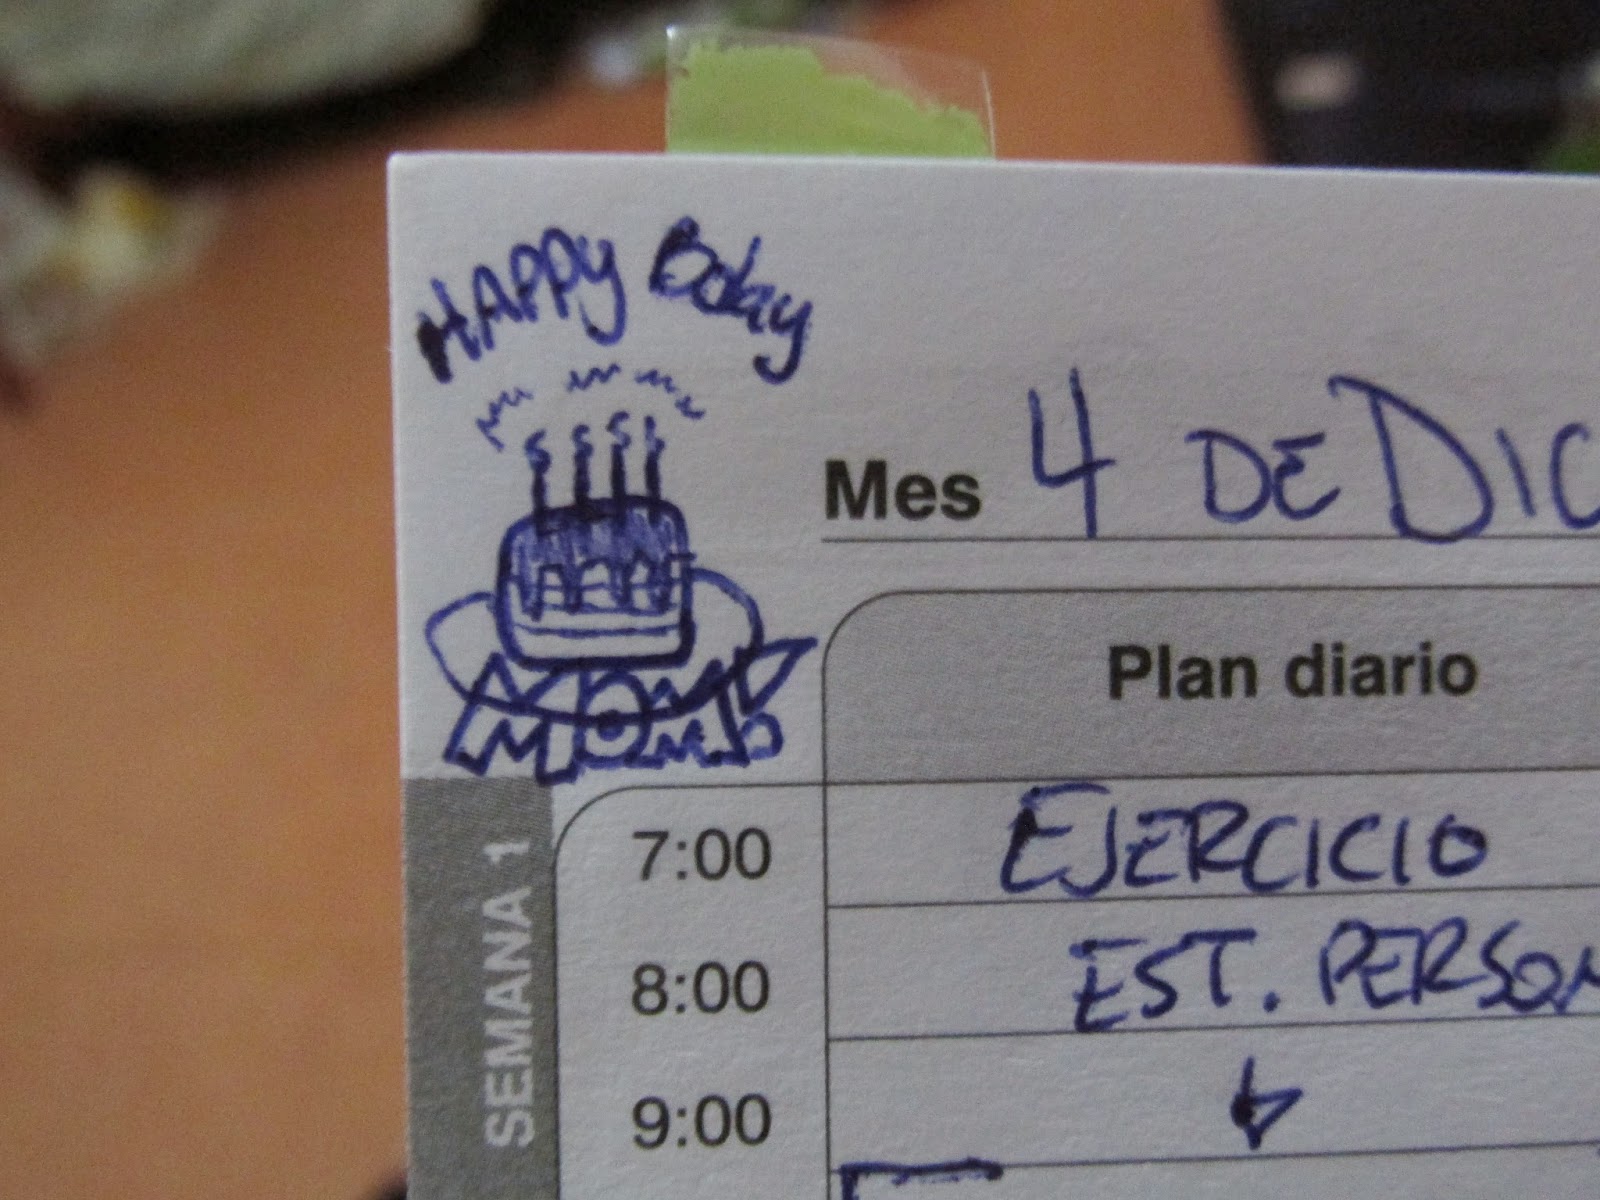 HAPPY Bday
MOM
Mes 4 DE DIC
Plan diario
SEMANA 1
7:00 EJERCICIO
8:00 EST. PERSON
9:00